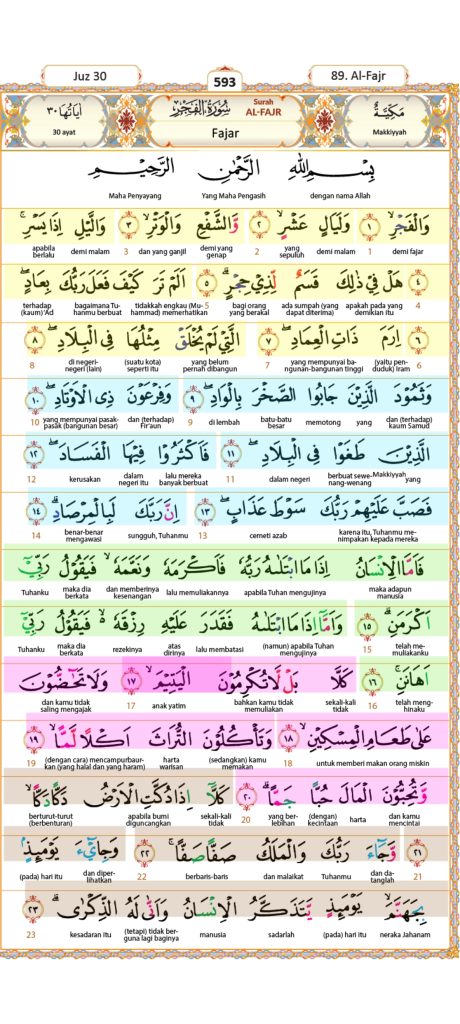 Juz 30
593
89. Al-Fajr
اٰيَاتُهَا ٣٠
30 ayat
سُوْرَةُ الْفَجْرِ
Surah
AL-FAJR
Fajar
مَكِّيَّةٌ
Makkiyyah
بِسْمِ اللّٰهِ الرَّحْمٰنِ الرَّحِيْمِ
dengan nama Allah Yang Maha Pengasih Maha Penyayang
وَالْفَجْرِۙ ١ وَلَيَالٍ عَشْرٍۙ ٢ وَّالشَّفْعِ وَالْوَتْرِۙ ٣ وَالَّيْلِ اِذَا يَسْرِۚ
demi fajar 1 demi malam yang sepuluh 2 demi yang genap dan yang ganjil 3 demi malam apabila berlalu
٤ هَلْ فِيْ ذٰلِكَ قَسَمٌ لِّذِيْ حِجْرٍۗ ٥ اَلَمْ تَرَ كَيْفَ فَعَلَ رَبُّكَ بِعَادٍۖ
4 apakah pada yang demikian itu ada sumpah (yang dapat diterima) bagi orang yang berakal 5 tidakkah engkau (Muhammad) memerhatikan bagaimana Tuhanmu berbuat terhadap (kaum) 'Ad
٦ اِرَمَ ذَاتِ الْعِمَادِۖ ٧ الَّتِيْ لَمْ يُخْلَقْ مِثْلُهَا فِى الْبِلَادِۖ ٨
6 (yaitu penduduk) Iram yang mempunyai bangunan-bangunan tinggi 7 yang belum pernah dibangun (suatu kota) seperti itu di negeri-negeri (lain) 8
وَثَمُوْدَ الَّذِيْنَ جَابُوا الصَّخْرَ بِالْوَادِۖ ٩ وَفِرْعَوْنَ ذِى الْاَوْتَادِۖ ١٠
dan (terhadap) kaum Samud yang memotong batu-batu besar di lembah 9 dan (terhadap) Fir'aun yang mempunyai pasak-pasak (bangunan besar) 10
الَّذِيْنَ طَغَوْا فِى الْبِلَادِۖ ١١ فَاَكْثَرُوْا فِيْهَا الْفَسَادَۖ ١٢
yang Makkiyyah berbuat sewenang-wenang dalam negeri 11 lalu mereka banyak berbuat dalam negeri itu kerusakan 12
فَصَبَّ عَلَيْهِمْ رَبُّكَ سَوْطَ عَذَابٍۖ ١٣ اِنَّ رَبَّكَ لَبِالْمِرْصَادِۗ ١٤
karena itu, Tuhanmu menimpakan kepada mereka cemeti azab 13 sungguh, Tuhanmu benar-benar mengawasi 14
فَاَمَّا الْاِنْسَانُ اِذَا مَا ابْتَلٰىهُ رَبُّهٗ فَاَكْرَمَهٗ وَنَعَّمَهٗۙ فَيَقُوْلُ رَبِّيْٓ
maka adapun manusia apabila Tuhan mengujinya lalu memuliakannya dan memberinya kesenangan maka dia berkata Tuhanku
اَكْرَمَنِۗ ١٥ وَاَمَّآ اِذَا مَا ابْتَلٰىهُ فَقَدَرَ عَلَيْهِ رِزْقَهٗۙ فَيَقُوْلُ رَبِّيْٓ
telah memuliakanku 15 (namun) apabila Tuhan mengujinya lalu membatasi atas dirinya rezekinya maka dia berkata Tuhanku
اَهَانَنِۚ ١٦ كَلَّا بَلْ لَّا تُكْرِمُوْنَ الْيَتِيْمَۙ ١٧ وَلَا تَحٰۤضُّوْنَ
telah menghinaku 16 sekali-kali tidak bahkan kamu tidak memuliakan anak yatim 17 dan kamu tidak saling mengajak
عَلٰى طَعَامِ الْمِسْكِيْنِۙ ١٨ وَتَأْكُلُوْنَ التُّرَاثَ اَكْلًا لَّمًّاۙ ١٩
untuk memberi makan orang miskin 18 (sedangkan) kamu memakan harta warisan (dengan cara) mencampurbaurkan (yang halal dan yang haram) 19
وَّتُحِبُّوْنَ الْمَالَ حُبًّا جَمًّاۗ ٢٠ كَلَّآ اِذَا دُكَّتِ الْاَرْضُ دَكًّا دَكًّاۙ
dan kamu mencintai harta (dengan) kecintaan yang berlebihan 20 sekali-kali tidak apabila bumi diguncangkan berturut-turut (berbenturan)
٢١ وَّجَاۤءَ رَبُّكَ وَالْمَلَكُ صَفًّا صَفًّاۚ ٢٢ وَجِايْۤءَ يَوْمَىِٕذٍۢ
21 dan datanglah Tuhanmu dan malaikat berbaris-baris 22 dan diperlihatkan (pada) hari itu
بِجَهَنَّمَۙ يَوْمَىِٕذٍ يَّتَذَكَّرُ الْاِنْسَانُ وَاَنّٰى لَهُ الذِّكْرٰىۗ ٢٣
neraka Jahanam (pada) hari itu sadarlah manusia (tetapi) tidak berguna lagi baginya kesadaran itu 23